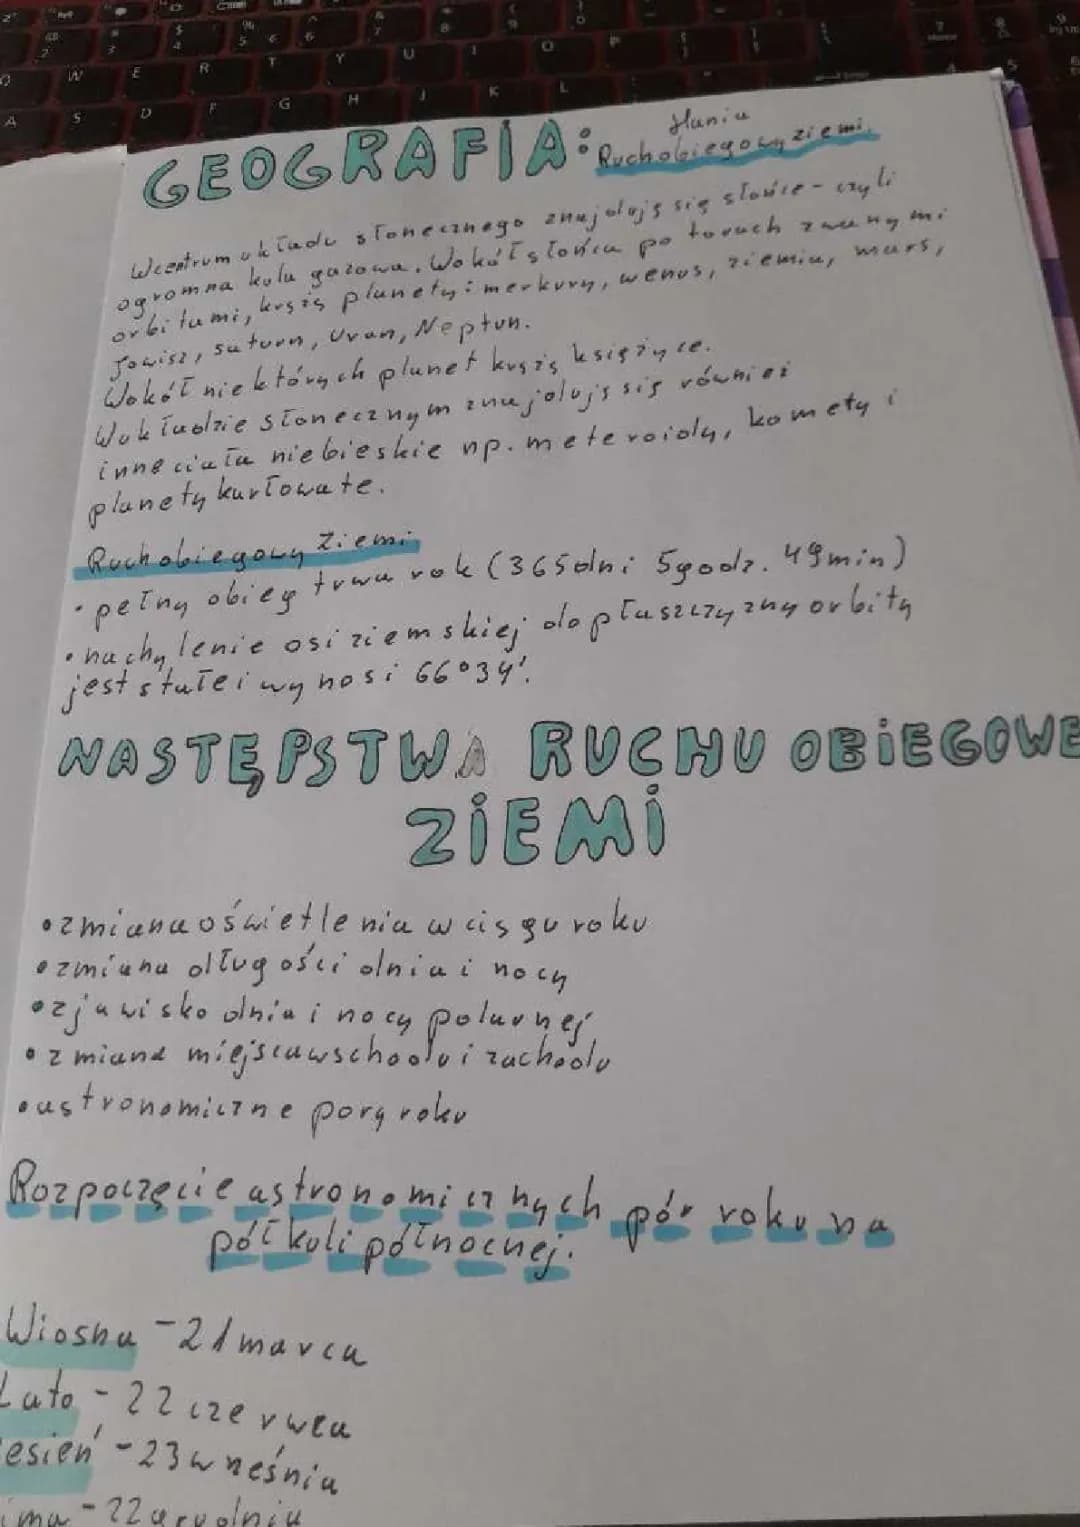 GEOGRAFIA:
Hania
Ruch obiegowy ziemi.
W centrum układu słonecznego znajdują się słońce - czyli
ogromna kula gazowa. Wokół słońca po torach zwanymi
orbitami, krążą planety: merkury, wenus, ziemia, mars,
Jowisz, saturn, Uran, Neptun.
Wokół niektórych planet krążą księżyce.
W układzie słonecznym znajdują się również
inne ciała niebieskie np. meteroidy, komety i
planety karłowate.
Ruch obiegowy Ziemi
• pełny obieg trwa rok (365 dni 5 godz. 49 min)
• nachylenie osi ziemskiej do płaszczyzny orbity
jest stałe i wynosi 66°34'.
NASTĘPSTWA RUCHU OBIEGOWE
ZIEMI
• zmiana oświetlenia w ciągu roku
• zmiana długości dnia i nocy
• zjawisko dnia i nocy polarnej
• zmiana miejsca wschodu i zachodu
• astronomiczne pory roku
Rozpoczęcie astronomicznych pór roku na
półkuli północnej.
Wiosna - 21 marca
Lato - 22 czerwca
esień - 23 wneśnia
ima - 22 grudnia